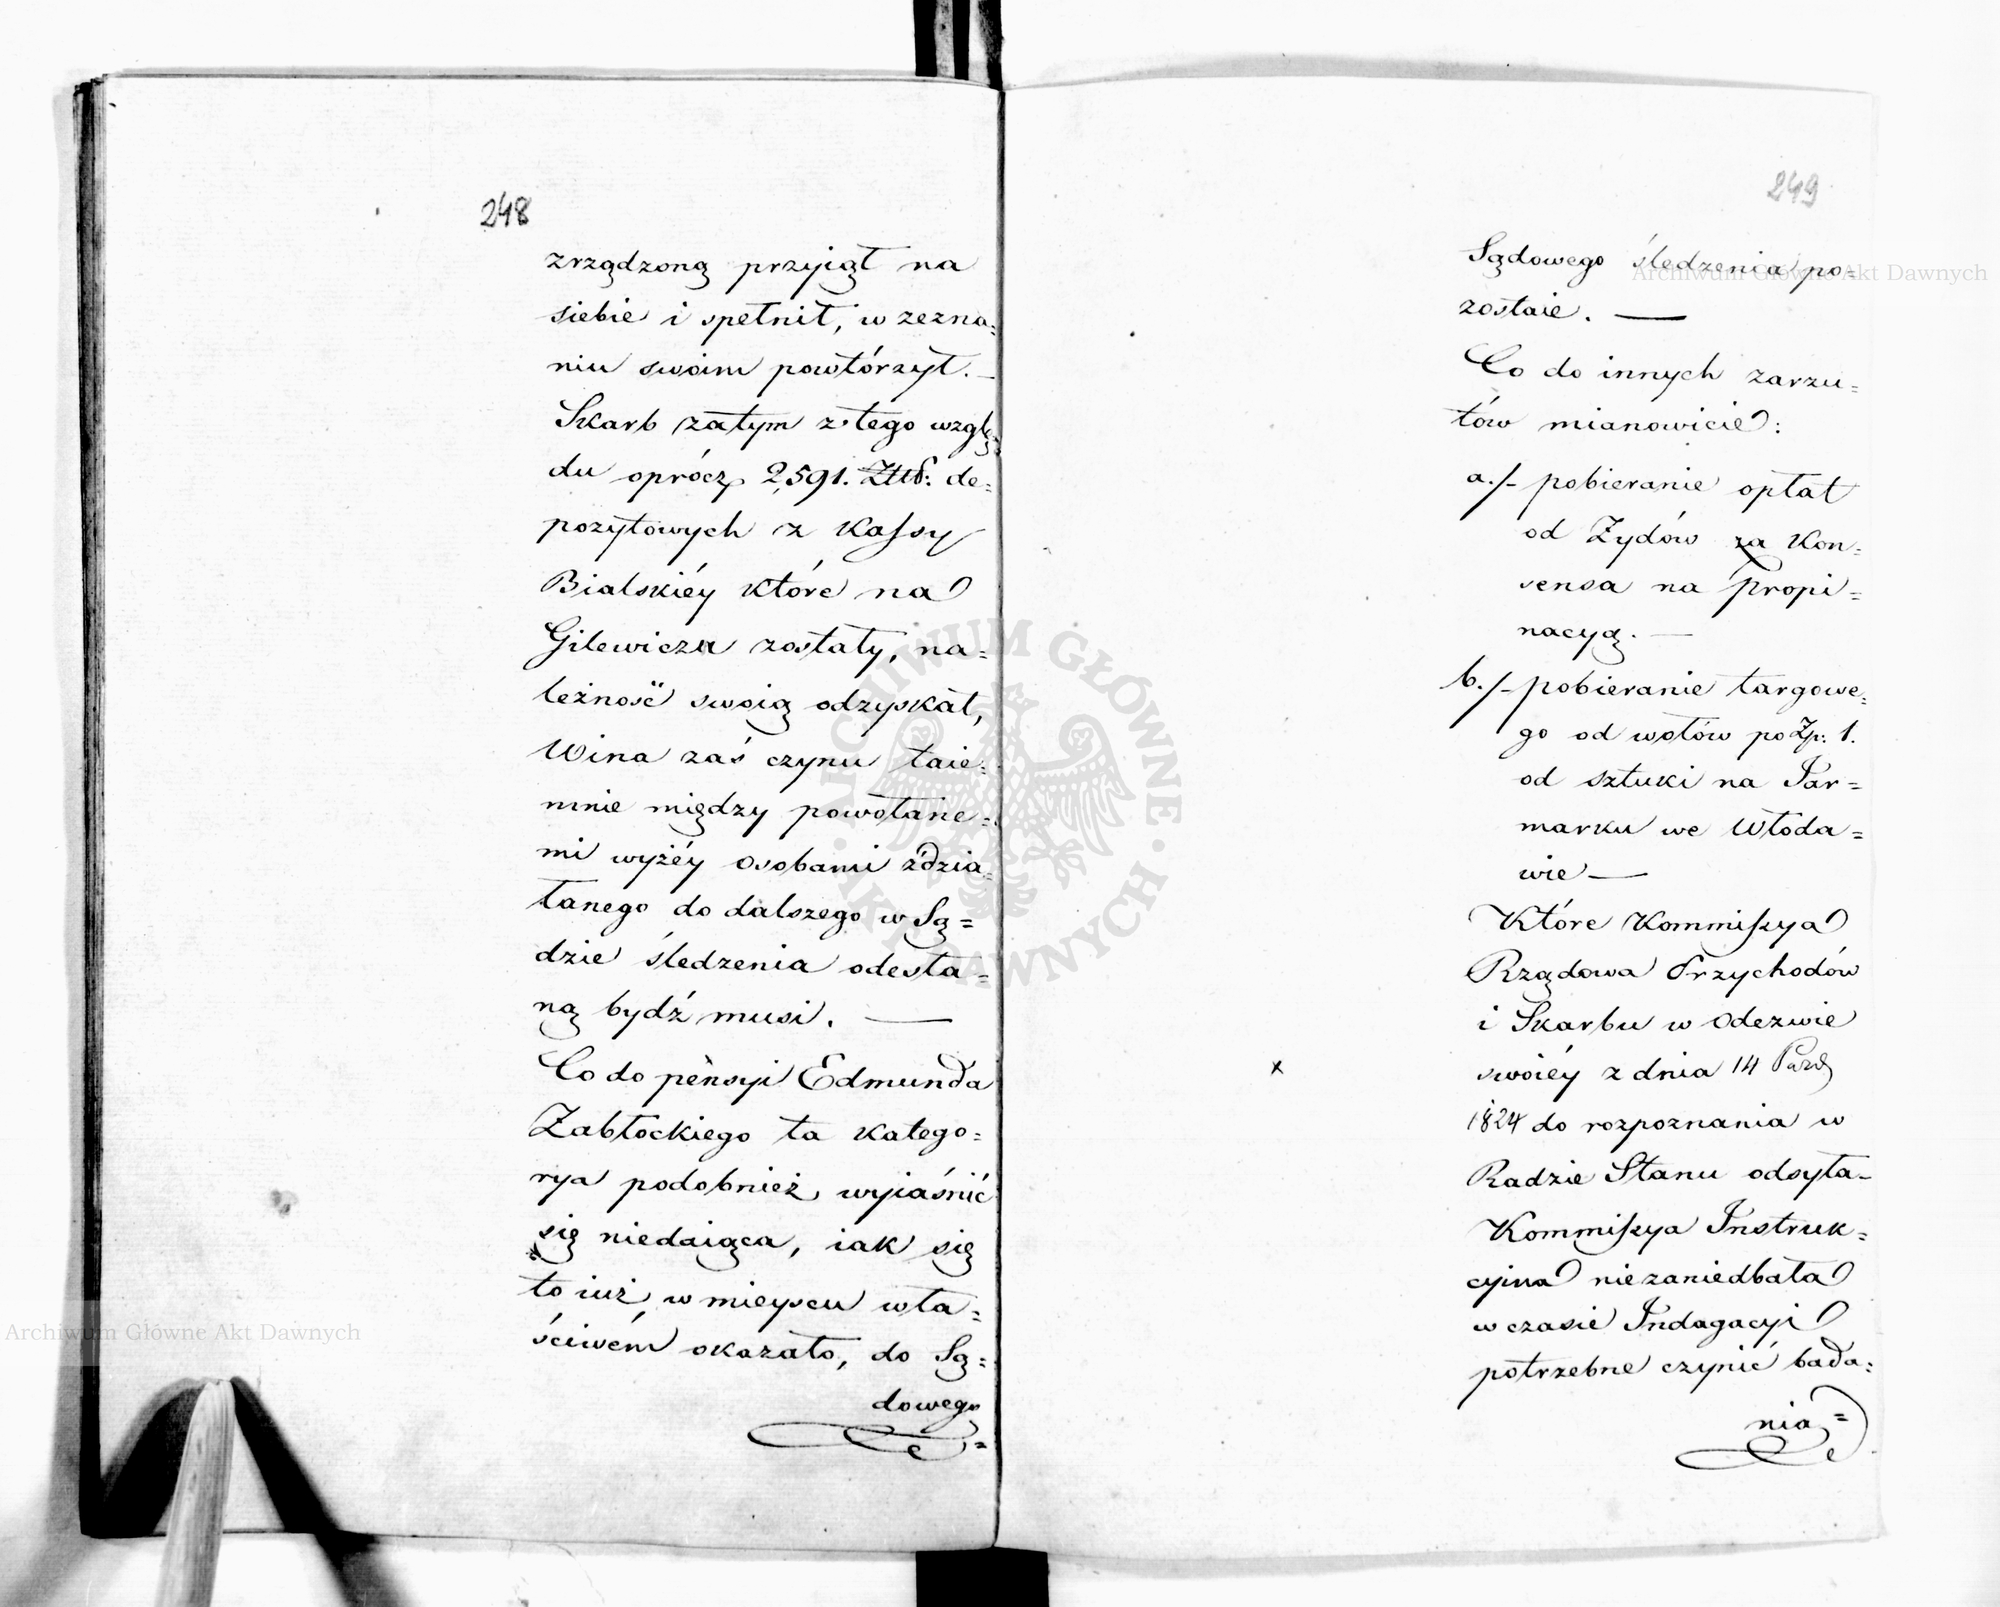 248
zrządzoną przyiął na
siebie i spełnił, w zezna=
niu swoim powtórzył. —
Skarb zatym z tego wzglę=
du oprócz 2,591. Złłp: de=
pozytowych z Kassy
Bialskiéy które na
Gilewicza zostały, na=
leżność swoią odzyskał,
Wina zaś czynu taie=
mnie między powołane=
mi wyżéy osobami zdzia=
łanego do dalszego w Są=
dzie śledzenia odesła=
ną bydź musi. —
Co do pensyi Edmunda
Zabłockiego ta katego=
rya podobnież wyiaśnić
się niedaiąca, iak się
to iuż w mieyscu wła=
ściwém okazało, do Są=
dowego
249
Sądowego śledzenia po=
zostaie. —
Co do innych zarzu=
tów mianowicie:
a./- pobieranie opłat
od Żydów za Kon=
sensa na propi=
nacyą. —
b./- pobieranie targowe=
go od wołów po Zp: 1.
od sztuki na Jar=
marku we Włoda=
wie —
Które Kommissya
Rządowa Przychodów
i Skarbu w Odezwie
x
swoiéy z dnia 14 Paźd
1824 do rozpoznania w
Radzie Stanu odsyła—
Kommissya Instruk=
cyina niezaniedbała
w czasie Indagacyi
potrzebne czynić bada=
nia=
Archiwum Główne Akt Dawnych
Archiwum Główne Akt Dawnych
ARCHIWUM GŁÓWNE · AKT DAWNYCH ·